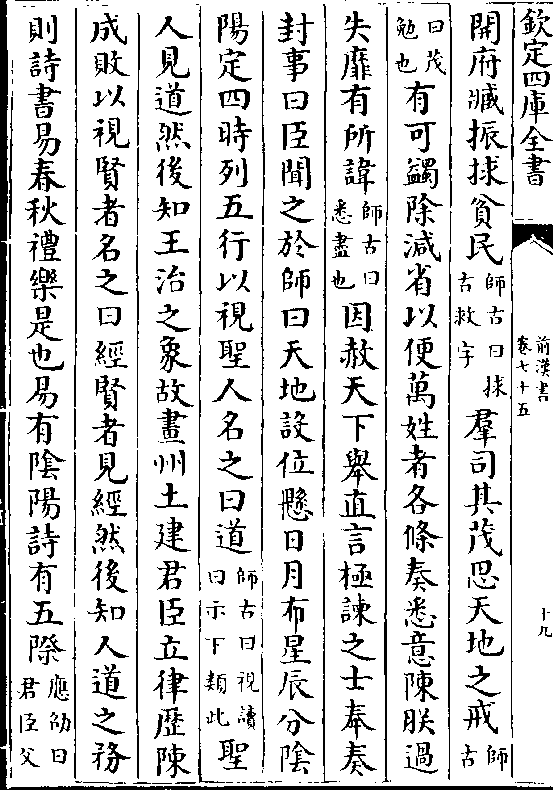 欽定四庫全書
前漢書
卷七十五
十九
開府臧振捄貧民師古曰捄古救字羣司其茂思天地之戒師古
曰茂勉也有可蠲除減省以便萬姓者各條奏悉意陳朕過
失靡有所諱師古曰悉盡也因赦天下舉直言極諫之士奉奏
封事曰臣聞之於師曰天地設位懸日月布星辰分陰
陽定四時列五行以視聖人名之曰道師古曰視讀曰示下類此聖
人見道然後知王治之象故畫州土建君臣立律歷陳
成敗以視賢者名之曰經賢者見經然後知人道之務
則詩書易春秋禮樂是也易有陰陽詩有五際應劭曰君臣父